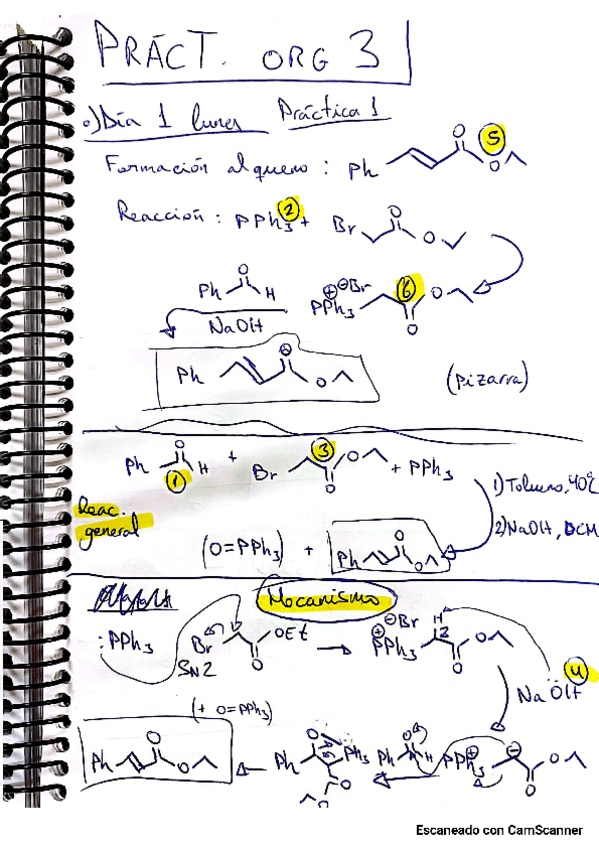 PRÁCT. ORG 3
o) Día 1 lunes Práctica 1
Formación alqueno: Ph O O 5
Reacción: PPh3 2 + Br O O
Ph O H
NaOH
⊕ ⊖Br
PPh3 6 O O
Ph O O
(pizarra)
Ph O H 1 + Br 3 O O + PPh3
1) Tolueno, 40°C
2) NaOH, DCM
Reac. general
(O=PPh3) + Ph O O
Mecanismo
:PPh3 Br O OEt
SN2
⊖Br H
⊕
PPh3 O O
4
Na OH
(+ O=PPh3)
Ph O O
Ph O PPh3 O O
Ph O H
PPh3 ⊕ ⊖ O O
Escaneado con CamScanner